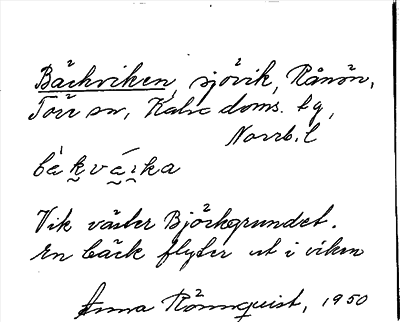 Bäckviken, sjövik, Rånön,
Töre sn, Kalix doms. tg,
Norrb. l
bækvæika
Vik väster Björkgrundet.
En bäck flyter ut i viken
Anna Rönnquist, 1950